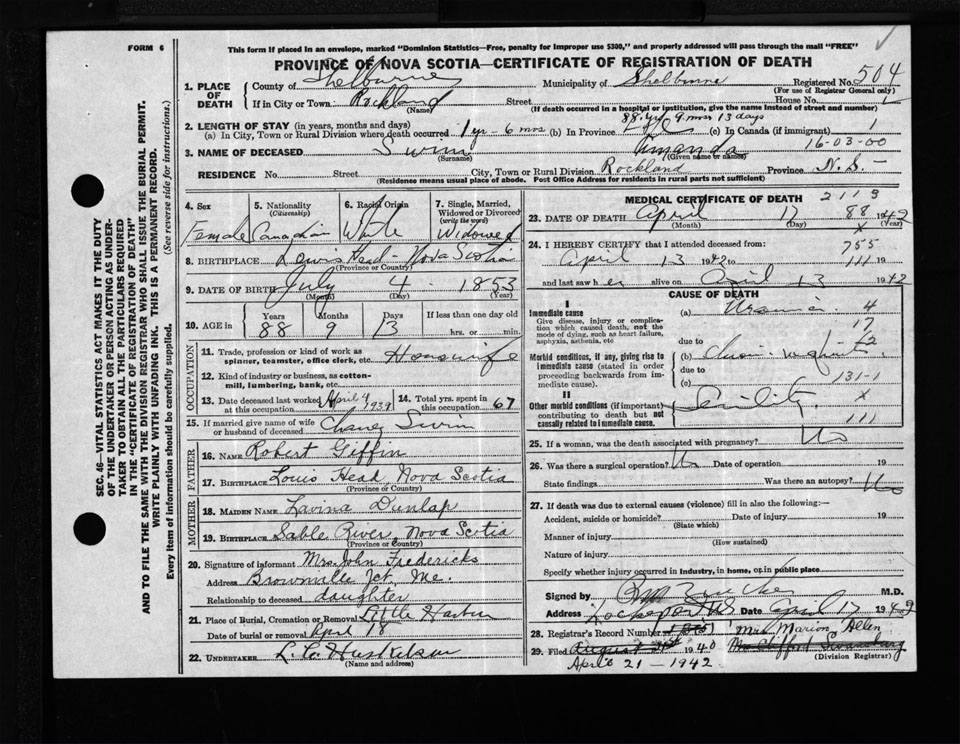 FORM 6
This form if placed in an envelope, marked "Dominion Statistics—Free, penalty for improper use $300," and properly addressed will pass through the mail "FREE"
PROVINCE OF NOVA SCOTIA—CERTIFICATE OF REGISTRATION OF DEATH
1. PLACE OF DEATH County of Shelburne Municipality of Shelburne Registered No. 504
(For use of Registrar General only)
If in City or Town Rockland Street House No.
(Name) (If death occurred in a hospital or institution, give the name instead of street and number)
88 yr 9 mos 13 days
2. LENGTH OF STAY (in years, months and days)
(a) In City, Town or Rural Division where death occurred 1 yr - 6 mos (b) In Province Life (c) In Canada (if immigrant) 1
16-03-00
3. NAME OF DECEASED Swim Amanda
(Surname) (Given name or names)
RESIDENCE No. Street City, Town or Rural Division Rockland Province N.S.
(Residence means usual place of abode. Post Office Address for residents in rural parts not sufficient)
4. Sex Female
5. Nationality (Citizenship) Canadian
6. Racial Origin White
7. Single, Married, Widowed or Divorced (write the word) Widowed
8. BIRTHPLACE Lewis Head - Nova Scotia
(Province or Country)
9. DATE OF BIRTH July 4 1853
(Month) (Day) (Year)
10. AGE in Years Months Days If less than one day old
88 9 13 hrs. or min.
OCCUPATION
11. Trade, profession or kind of work as spinner, teamster, office clerk, etc. Housewife
12. Kind of industry or business, as cotton-mill, lumbering, bank, etc.
13. Date deceased last worked at this occupation April 4 1939
14. Total yrs. spent in this occupation 67
15. If married give name of wife or husband of deceased Swim
FATHER
16. NAME Robert Giffin
17. BIRTHPLACE Louis Head, Nova Scotia
(Province or Country)
MOTHER
18. MAIDEN NAME Lavina Dunlap
19. BIRTHPLACE Sable River, Nova Scotia
(Province or Country)
20. Signature of informant Mrs. John Fredericks
Address Brownville Jct. Me.
Relationship to deceased daughter
21. Place of Burial, Cremation or Removal Little Harbor
Date of burial or removal April 18
22. UNDERTAKER L. C. Huskilson
(Name and address)
MEDICAL CERTIFICATE OF DEATH
2113
23. DATE OF DEATH April 17 88 1942
(Month) (Day) x
24. I HEREBY CERTIFY that I attended deceased from: 755
April 13 1942 to 111 19
and last saw her alive on April 13 1942
CAUSE OF DEATH
I
Immediate cause
Give disease, injury or complication which caused death, not the mode of dying, such as heart failure, asphyxia, asthenia, etc
(a) Uraemia 4
17
due to
Morbid conditions, if any, giving rise to immediate cause (stated in order proceeding backwards from immediate cause).
(b)
due to
(c) 131-1
II
Other morbid conditions (if important) contributing to death but not causally related to immediate cause.
Senility x
111
25. If a woman, was the death associated with pregnancy? No
26. Was there a surgical operation? No Date of operation 19
State findings Was there an autopsy? No
27. If death was due to external causes (violence) fill in also the following:—
Accident, suicide or homicide? Date of injury 19
(State which)
Manner of injury
(How sustained)
Nature of injury
Specify whether injury occurred in industry, in home, or in public place
Signed by M.D.
Address Lockeport NS Date April 17 1942
28. Registrar's Record Number Mrs Marion Allen
29. Filed August 1940 Mrs Clifford
April 21 - 1942 (Division Registrar)
SEC. 46—VITAL STATISTICS ACT MAKES IT THE DUTY
OF THE UNDERTAKER OR PERSON ACTING AS UNDER-
TAKER TO OBTAIN ALL THE PARTICULARS REQUIRED
IN THE "CERTIFICATE OF REGISTRATION OF DEATH"
AND TO FILE THE SAME WITH THE DIVISION REGISTRAR WHO SHALL ISSUE THE BURIAL PERMIT.
WRITE PLAINLY WITH UNFADING INK. THIS IS A PERMANENT RECORD.
Every item of information should be carefully supplied. (See reverse side for instructions.)